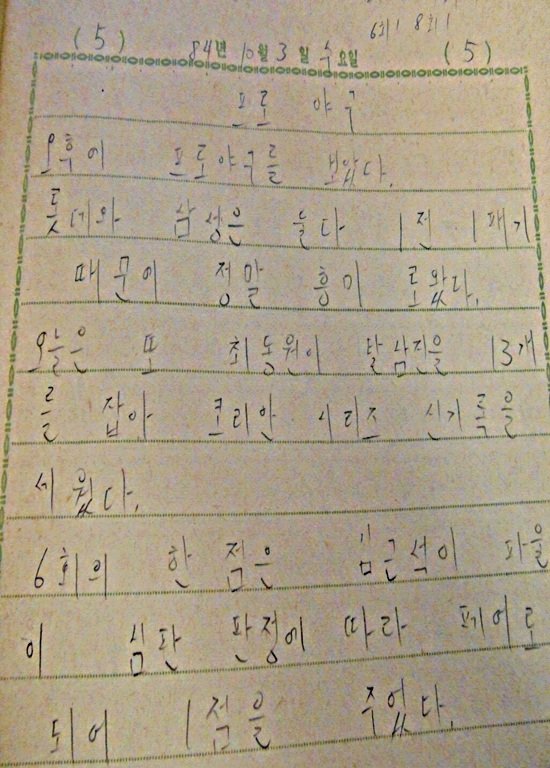 6회 8회
(5) 84년 10월 3일 수요일 (5)
프로 야구
오후에 프로야구를 보았다.
롯데와 삼성은 둘다 1전 1패기
때문에 정말 흥미로왔다.
오늘은 또 최동원이 탈삼진을 13개
를 잡아 코리안 시리즈 신기록을
세웠다.
6회의 한 점은 임근석이 파울
이 심판 판정에 따라 페어로
되어 1점을 주었다.